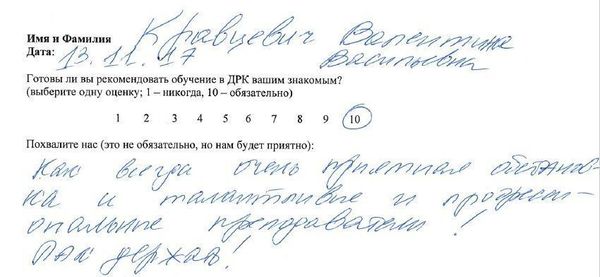 Имя и Фамилия Кравцевич Валентина
Васильевна
Дата: 13.11.17
Готовы ли вы рекомендовать обучение в ДРК вашим знакомым?
(выберите одну оценку; 1 – никогда, 10 – обязательно)
1 2 3 4 5 6 7 8 9 10
Похвалите нас (это не обязательно, но нам будет приятно):
Как всегда очень приятная обстанов-
ка и талантливые и професси-
ональные преподаватели!
Так держать!